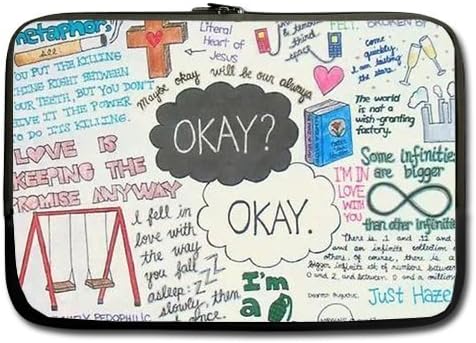 metaphor,
YOU PUT THE KILLING
THING RIGHT BETWEEN
OUR TEETH, BUT YOU DON'T
GIVE IT THE POWER
TO DO ITS KILLING.
Literal
Heart of
Jesus
third
space
FELT.
BROKEN BY
Come
quickly,
I am tasting
the stars.
Maybe okay will be our always
OKAY?
OKAY.
The world
is not a
wish-granting
factory.
LOVE IS
KEEPING THE
PROMISE ANYWAY
I'M IN
LOVE
WITH
YOU
Some infinities
are bigger
than other infinities
I fell in
love with
the way
you fall
asleep:
slowly, then
once.
ZZZ
I'm
a
there is .1 and .12 and
and an infinite collection of
others. of course, there is a
bigger infinite set of numbers between
0 and 2, and between 0 and a million
Just Haze
PEDOPHILIC